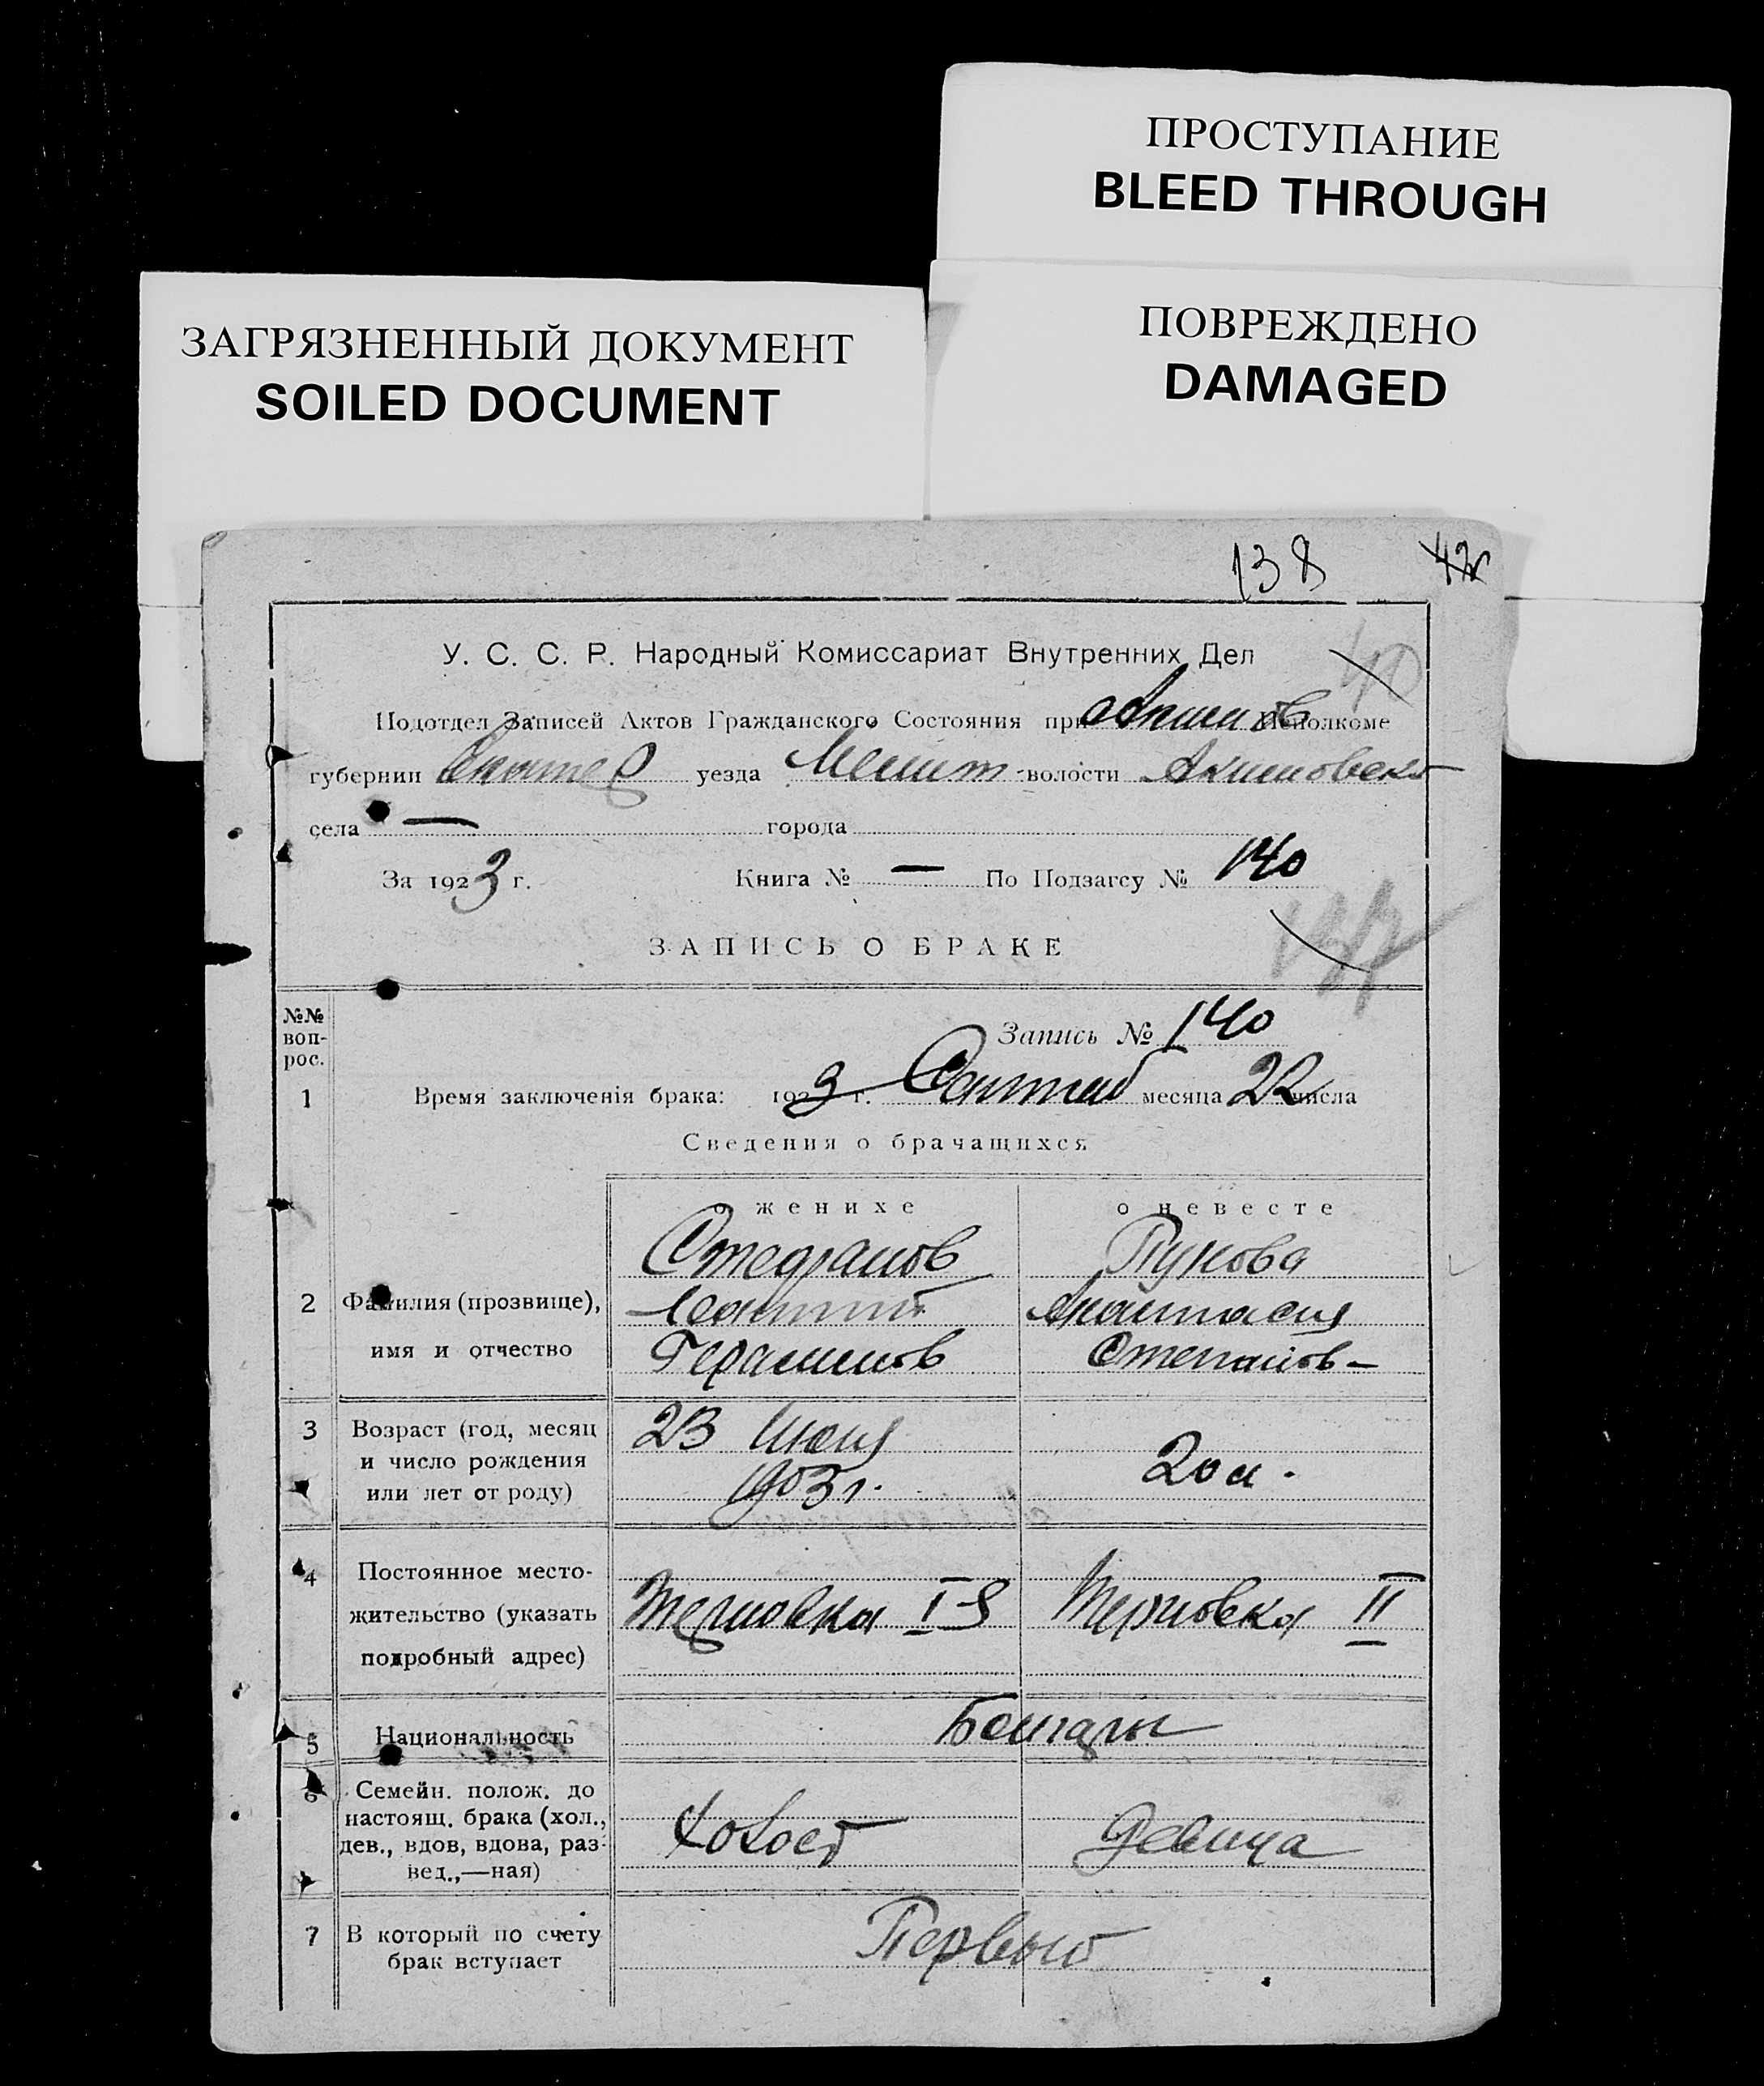 ПРОСТУПАНИЕ
BLEED THROUGH
ПОВРЕЖДЕНО
DAMAGED
ЗАГРЯЗНЕННЫЙ ДОКУМЕНТ
SOILED DOCUMENT
138 42
40
У. С. С. Р. Народный Комиссариат Внутренних Дел
Подотдел Записей Актов Гражданского Состояния при Акимов Исполкоме
губернии Екатер уезда Мелит волости Акимовско
села — города
За 1923 г. Книга № — По Подзагсу № 140
137
ЗАПИСЬ О БРАКЕ
№№ вопрос.
Запись № 140
1 Время заключенія брака: 1923 г. Сентяб месяца 22 числа
Сведения о брачащихся
о женихе о невесте
Стефанов
2 Фамилия (прозвище), Анастасия
имя и отчество Герасимов Степанов-
3 Возраст (год, месяц 23 Июля
и число рождения 20 л.
или лет от роду) 1903 г.
4 Постоянное место-
жительство (указать Терновка I-я Терновка II
подробный адрес)
5 Национальность Болгары
6 Семейн. полож. до
настоящ. брака (хол.,
дев., вдов, вдова, раз- Холост Девица
вед.,—ная)
7 В который по счету Первый
брак вступает